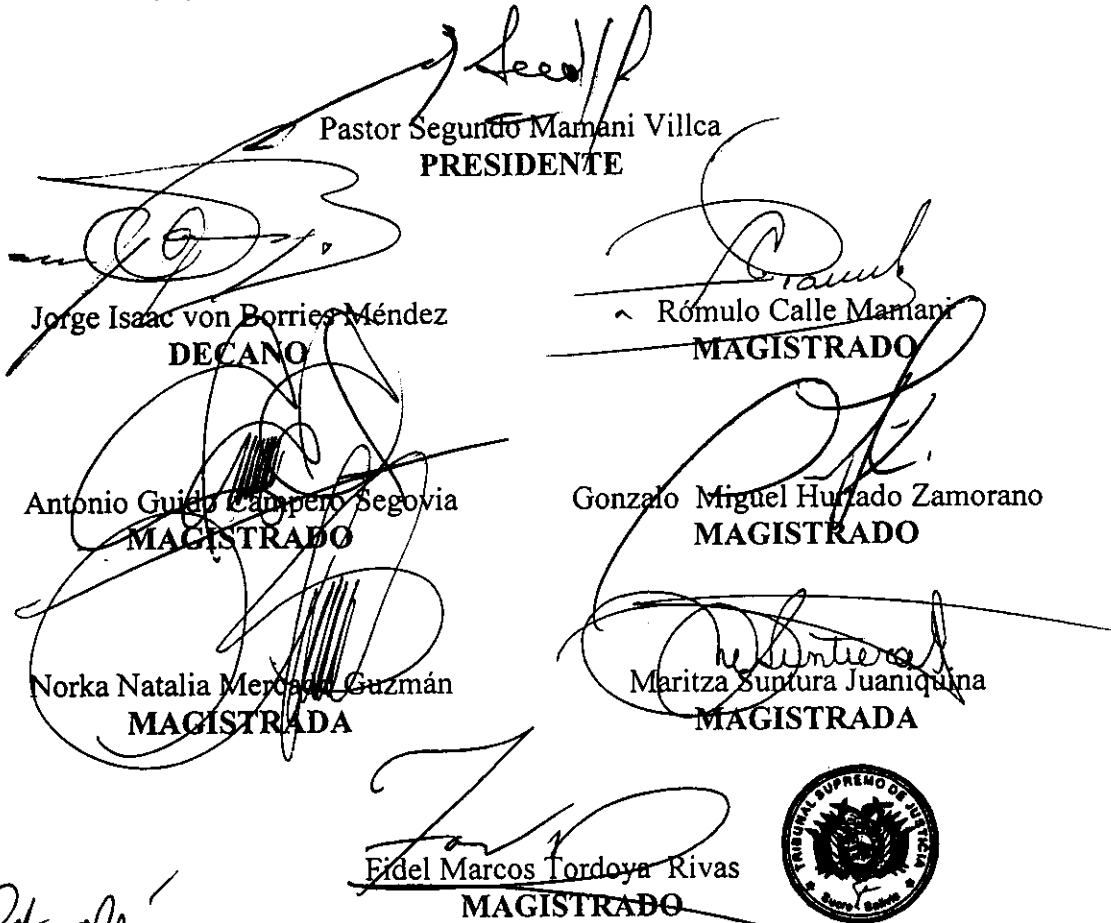 Pastor Segundo Mamani Villca
PRESIDENTE
Jorge Isaac von Borries Méndez
DECANO
Rómulo Calle Mamani
MAGISTRADO
Antonio Guido Campero Segovia
MAGISTRADO
Gonzalo Miguel Hurtado Zamorano
MAGISTRADO
Norka Natalia Mercado Guzmán
MAGISTRADA
Maritza Suntura Juaniquina
MAGISTRADA
Fidel Marcos Tordoya Rivas
MAGISTRADO
TRIBUNAL SUPREMO DE JUSTICIA
Sucre - Bolivia